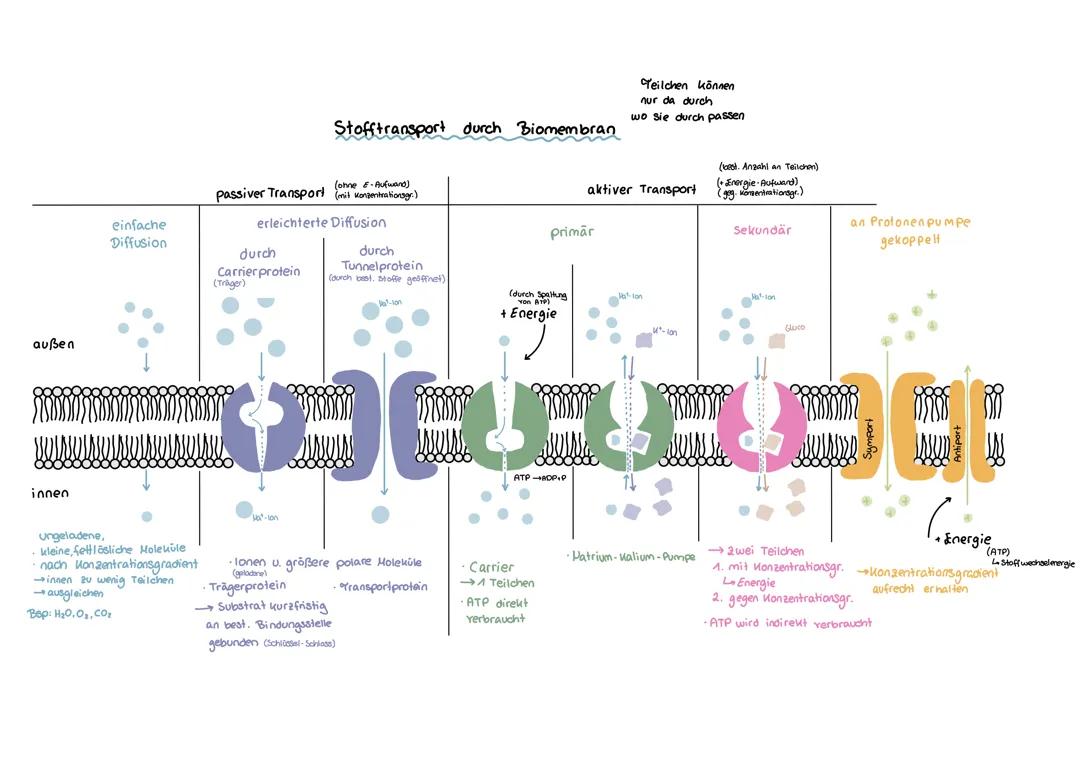 Teilchen können
nur da durch
wo sie durch passen
Stofftransport durch Biomembran
passiver Transport (ohne E-Aufwand)
(mit Konzentrationsgr.)
aktiver Transport
(best. Anzahl an Teilchen)
(+ Energie-Aufwand)
(geg. Konzentrationsgr.)
einfache
Diffusion
erleichterte Diffusion
durch
Carrierprotein
(Träger)
durch
Tunnelprotein
(durch best. Stoffe geöffnet)
primär
sekundär
an Protonenpumpe
gekoppelt
(durch Spaltung
von ATP)
+ Energie
Na⁺-Ion
Na⁺-Ion
K⁺-Ion
Na⁺-Ion
Gluco
außen
Symport
Antiport
innen
ATP → ADP+P
Na⁺-Ion
+ Energie
(ATP)
↳ Stoffwechselenergie
ungeladene,
· kleine, fettlösliche Moleküle
· nach Konzentrationsgradient
→ innen zu wenig Teilchen
→ ausgleichen
Bsp: H₂O, O₂, CO₂
· Ionen u. größere polare Moleküle
(geladene)
· Trägerprotein
→ Substrat kurzfristig
an best. Bindungsstelle
gebunden (Schlüssel-Schloss)
· Transportprotein
· Carrier
→ 1 Teilchen
· ATP direkt
verbraucht
· Natrium-Kalium-Pumpe
→ zwei Teilchen
1. mit Konzentrationsgr.
↳ Energie
2. gegen Konzentrationsgr.
· ATP wird indirekt verbraucht
→ Konzentrationsgradient
aufrecht erhalten